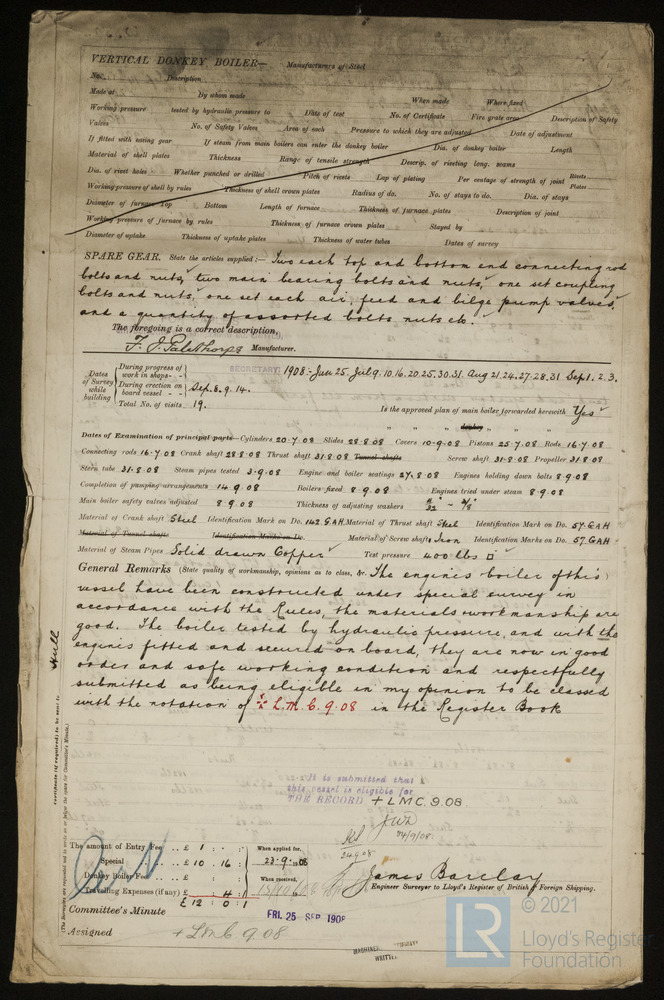 VERTICAL DONKEY BOILER— Manufacturers of Steel
No. Description
Made at By whom made When made Where fixed
Working pressure tested by hydraulic pressure to Date of test No. of Certificate Fire grate area Description of Safety
Valves No. of Safety Valves Area of each Pressure to which they are adjusted Date of adjustment
If fitted with easing gear If steam from main boilers can enter the donkey boiler Dia. of donkey boiler Length
Material of shell plates Thickness Range of tensile strength Descrip. of riveting long. seams
Dia. of rivet holes Whether punched or drilled Pitch of rivets Lap of plating Per centage of strength of joint Rivets Plates
Working pressure of shell by rules Thickness of shell crown plates Radius of do. No. of stays to do. Dia. of stays
Diameter of furnace Top Bottom Length of furnace Thickness of furnace plates Description of joint
Working pressure of furnace by rules Thickness of furnace crown plates Stayed by
Diameter of uptake Thickness of uptake plates Thickness of water tubes Dates of survey
SPARE GEAR. State the articles supplied:— Two each top and bottom end connecting rod
bolts and nuts, two main bearing bolts and nuts, one set coupling
bolts and nuts, one set each air, feed and bilge pump valves,
and a quantity of assorted bolts nuts etc.
The foregoing is a correct description,
F. J. Palethorpe Manufacturer.
SECRETARY
Dates of Survey while building
During progress of work in shops- - 1908:- Jun 25. Jul 9. 10. 16. 20. 25. 30. 31. Aug 21. 24. 27. 28. 31 Sep 1. 2. 3.
During erection on board vessel - - Sep. 8. 9. 14.
Total No. of visits 19.
Is the approved plan of main boiler forwarded herewith Yes
" " donkey " "
Dates of Examination of principal parts—Cylinders 20.7.08 Slides 28.8.08 Covers 10.9.08 Pistons 25.7.08 Rods 16.7.08
Connecting rods 16.7.08 Crank shaft 28.8.08 Thrust shaft 31.8.08 Tunnel shafts Screw shaft 31.8.08 Propeller 31.8.08
Stern tube 31.8.08 Steam pipes tested 3.9.08 Engine and boiler seatings 27.8.08 Engines holding down bolts 8.9.08
Completion of pumping arrangements 14.9.08 Boilers fixed 8.9.08 Engines tried under steam 8.9.08
Main boiler safety valves adjusted 8.9.08 Thickness of adjusting washers
Material of Crank shaft Steel Identification Mark on Do. 142 G.A.H. Material of Thrust shaft Steel Identification Mark on Do. 57.G.A.H
Material of Tunnel shafts Identification Marks on Do. Material of Screw shafts Iron Identification Marks on Do. 57.G.A.H
Material of Steam Pipes Solid drawn Copper Test pressure 400 lbs □
General Remarks (State quality of workmanship, opinions as to class, &c. The engines & boiler of this
vessel have been constructed under special survey in
accordance with the Rules, the materials & workmanship are
good. The boiler tested by hydraulic pressure, and with the
engines fitted and secured on board, they are now in good
order and safe working condition and respectfully
submitted as being eligible in my opinion to be classed
with the notation of + L.M.C. 9.08 in the Register Book
It is submitted that
this vessel is eligible for
THE RECORD + LMC 9.08
24/9/08
24.9.08
Certificate (if required) to be sent to Hull
(The Surveyors are requested not to write on or below the space for Committee's Minute.)
The amount of Entry Fee .. £ 1 : - : - When applied for,
Special .. £ 10 : 16 : 23.9.1908
Donkey Boiler Fee .. £ : : When received,
Travelling Expenses (if any) £ : 4 :
£ 12 : 0 : 1
James Barclay
Engineer Surveyor to Lloyd's Register of British & Foreign Shipping.
Committee's Minute FRI. 25 SEP 1908
Assigned + LMC 9.08
MACHINERY CERTIFICATE
WRITTEN
LR © 2021
Lloyd's Register
Foundation